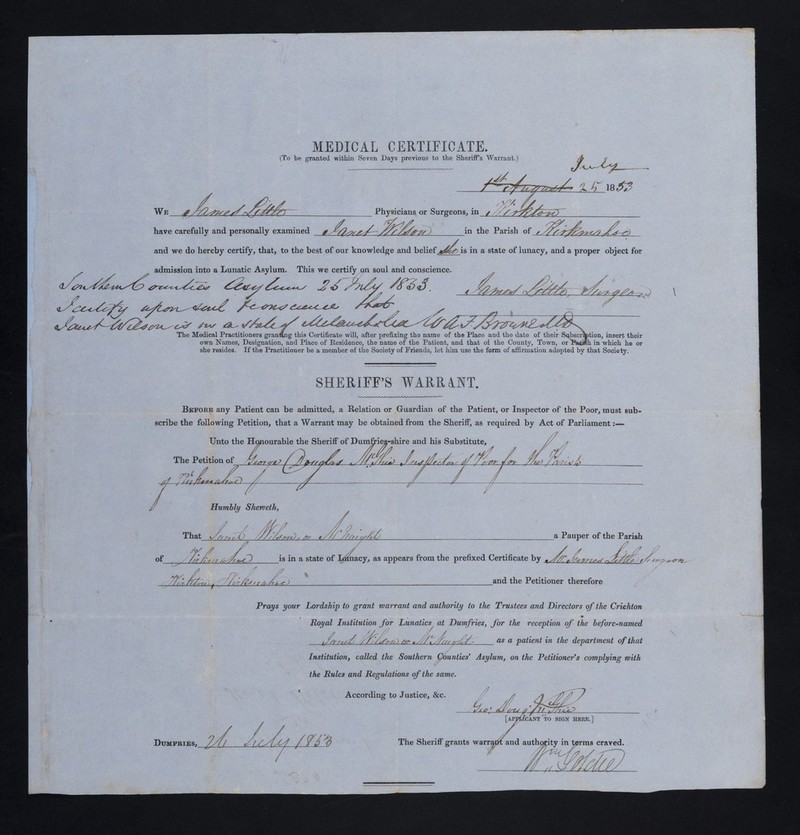 MEDICAL CERTIFICATE.
(To be granted within Seven Days previous to the Sheriff's Warrant.)
July
1st August 25 1853
WE James Little Physicians or Surgeons, in Kirkton
have carefully and personally examined Janet Wilson in the Parish of Kirkmahoe
and we do hereby certify, that, to the best of our knowledge and belief she is in a state of lunacy, and a proper object for
admission into a Lunatic Asylum. This we certify on soul and conscience.
Southern Counties Asylum 25 July 1853. James Little, Surgeon
I certify upon soul & conscience that
Janet Wilson is in a state of Melancholia W A F Browne MD
The Medical Practitioners granting this Certificate will, after prefixing the name of the Place and the date of their Subscription, insert their
own Names, Designation, and Place of Residence, the name of the Patient, and that of the County, Town, or Parish in which he or
she resides. If the Practitioner be a member of the Society of Friends, let him use the form of affirmation adopted by that Society.
SHERIFF'S WARRANT.
BEFORE any Patient can be admitted, a Relation or Guardian of the Patient, or Inspector of the Poor, must sub-
scribe the following Petition, that a Warrant may be obtained from the Sheriff, as required by Act of Parliament:—
Unto the Honourable the Sheriff of Dumfries-shire and his Substitute,
The Petition of George Douglas McGhie Inspector of Poor for the Parish
of Kirkmahoe
Humbly Sheweth,
That Janet Wilson or McNaight a Pauper of the Parish
of Kirkmahoe is in a state of Lunacy, as appears from the prefixed Certificate by Mr James Little Surgeon
Kirkton, Kirkmahoe and the Petitioner therefore
Prays your Lordship to grant warrant and authority to the Trustees and Directors of the Crichton
Royal Institution for Lunatics at Dumfries, for the reception of the before-named
Janet Wilson or McNaight as a patient in the department of that
Institution, called the Southern Counties' Asylum, on the Petitioner's complying with
the Rules and Regulations of the same.
According to Justice, &c.
Geo: Doug: McGhie
[APPLICANT TO SIGN HERE.]
DUMFRIES, 26 July 1853 The Sheriff grants warrant and authority in terms craved.
Wm Goldie